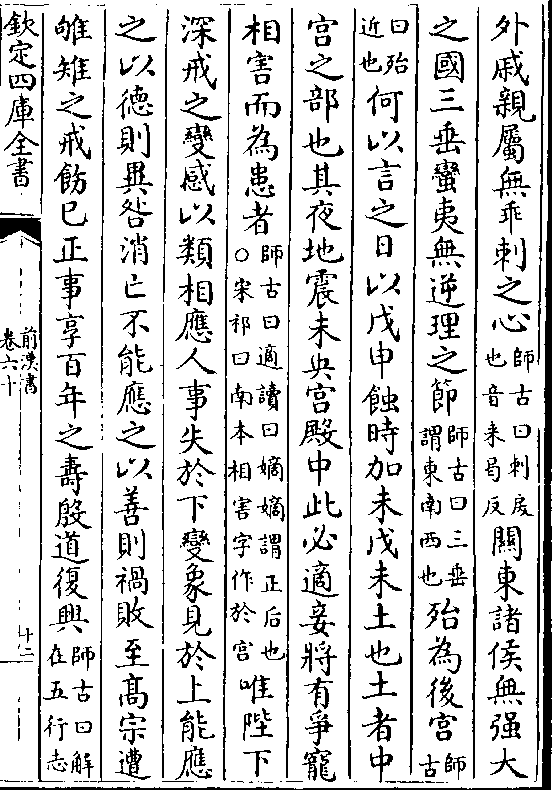 外戚親屬無乖刺之心師古曰刺戾也音来曷反關東諸侯無强大
之國三垂蠻夷無逆理之節師古曰三垂謂東南西也殆為後宫師古
曰殆近也何以言之日以戊申蝕時加未戊未土也土者中
宫之部也其夜地震未央宫殿中此必適妾將有爭寵
相害而為患者師古曰適讀曰嫡嫡謂正后也○宋祁曰南本相害字作於宫唯陛下
深戒之變感以類相應人事失於下變象見於上能應
之以德則異咎消亡不能應之以善則禍敗至髙宗遭
雊雉之戒飭已正事享百年之壽殷道復興師古曰解在五行志
欽定四庫全書
前漢書
卷六十
十二